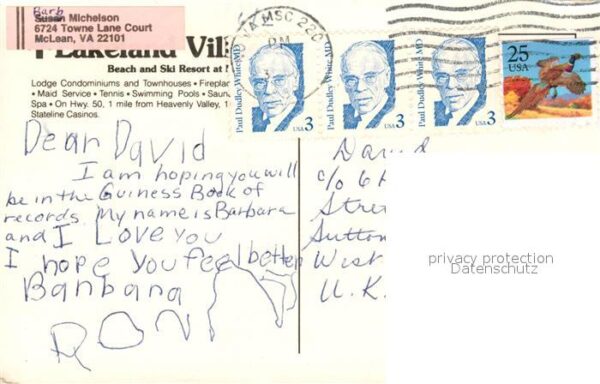 Barb
Susan Michelson
6724 Towne Lane Court
McLean, VA 22101
Lakeland Vil
Beach and Ski Resort at
Lodge Condominiums and Townhouses • Firepla
• Maid Service • Tennis • Swimming Pools • Saun
Spa • On Hwy. 50, 1 mile from Heavenly Valley, 1
Stateline Casinos.
VA MSC 220
PM
Paul Dudley White MD
USA 3
Paul Dudley White MD
USA 3
Paul Dudley White MD
USA 3
25
USA
Dear David
I am hoping you will
be in the Guiness Book of
records. My name is Barbara
and I Love you
I hope you feel better
Banbana
David
c/o 6
Stre
Sutton
West
U.K.
privacy protection
Datenschutz